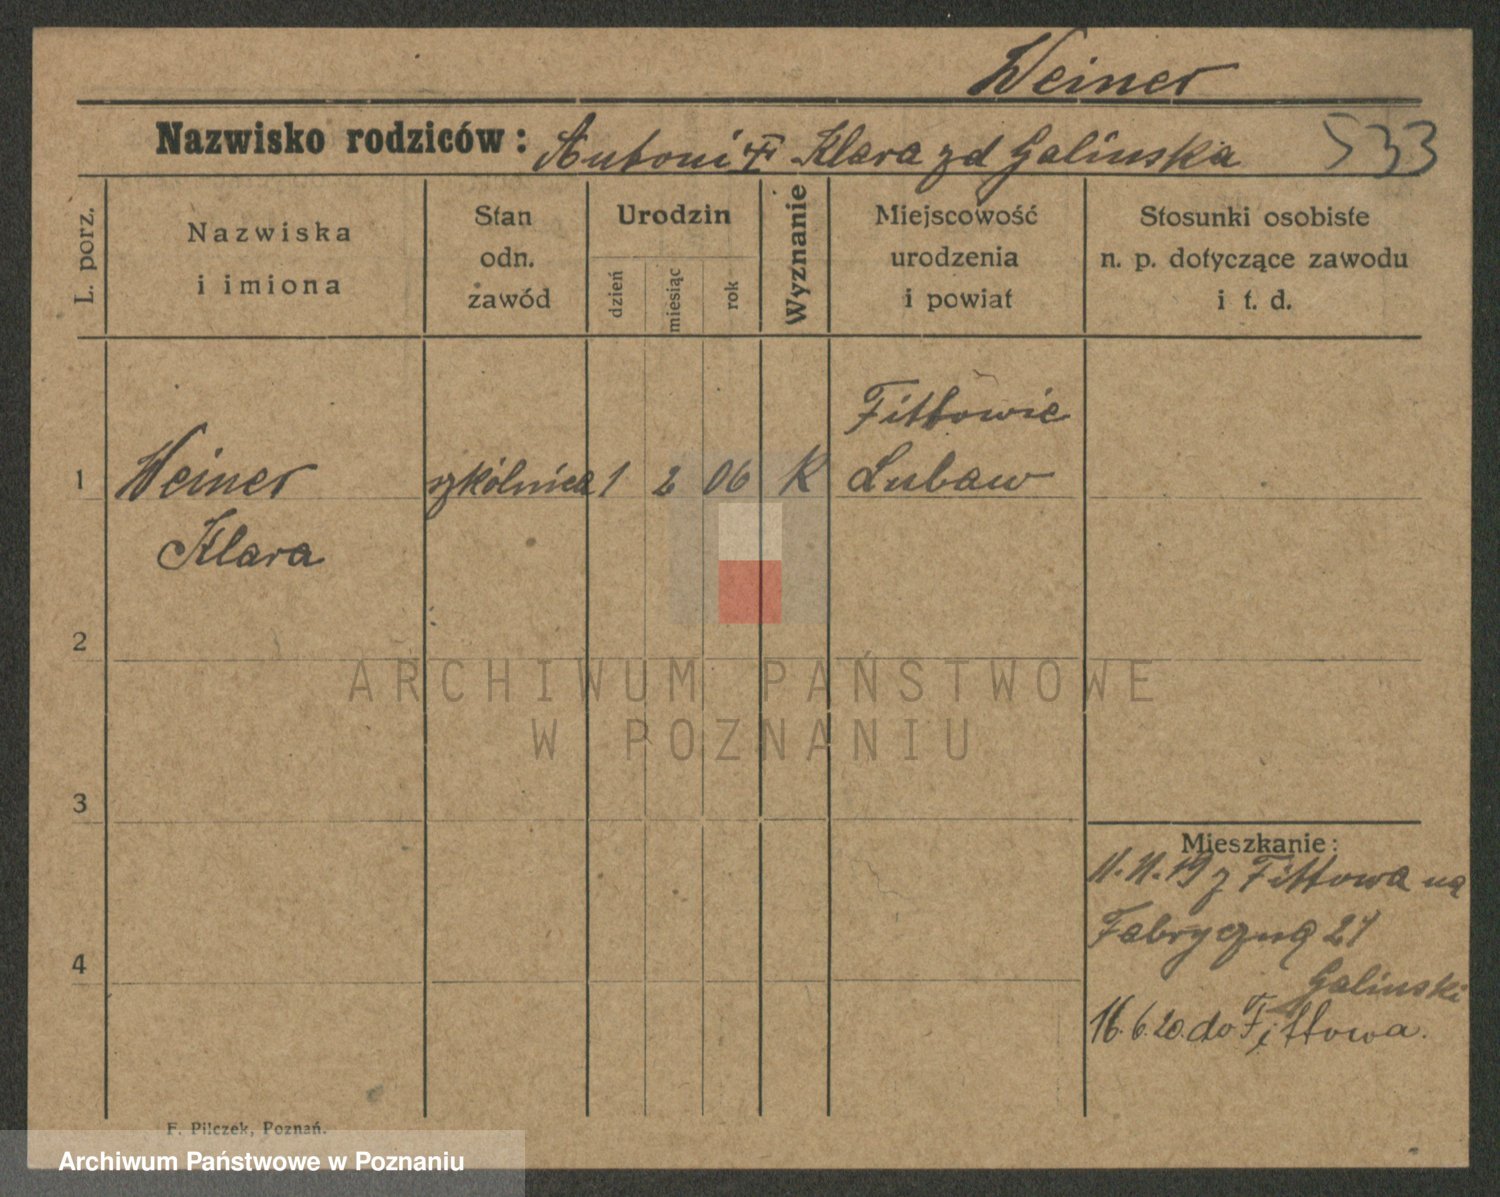 Weiner
Nazwisko rodziców: Antoni Klara zd Galinska 533
L. porz.
Nazwiska
i imiona
Stan
odn.
zawód
Urodzin
dzień
miesiąc
rok
Wyznanie
Miejscowość
urodzenia
i powiat
Stosunki osobiste
n. p. dotyczące zawodu
i t. d.
Fittowie
1 Weiner szkólnica 1 2 06 K Lubaw
Klara
2
ARCHIWUM PAŃSTWOWE
W POZNANIU
3
Mieszkanie:
11.11.19 z Fittowa na
Fabryczną 21
4
Galinski
16.6.20. do Fittowa.
F. Pilczek, Poznań.
Archiwum Państwowe w Poznaniu